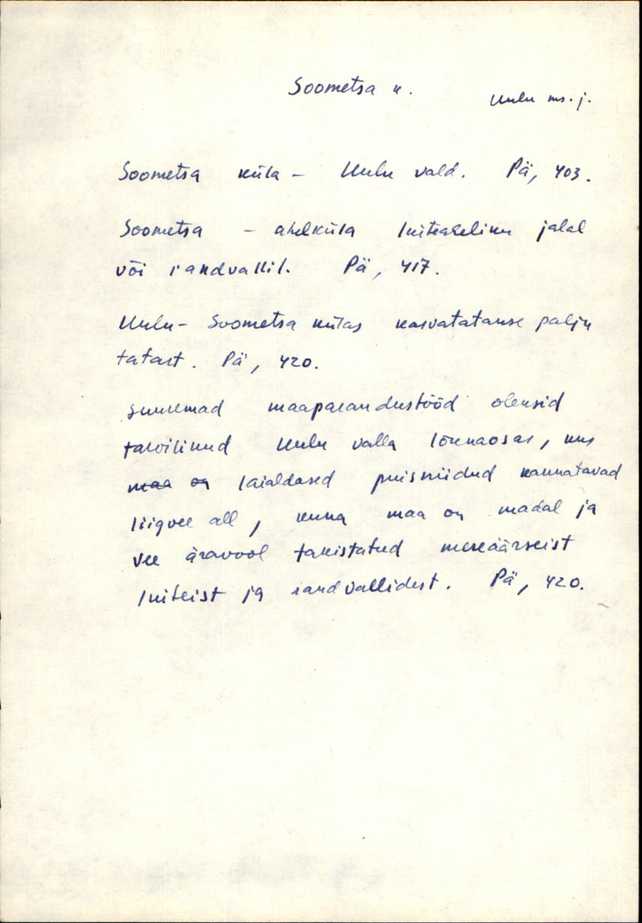 Soometsa k.
Uulu ms. j.
Soometsa küla – Uulu vald. Pä, 403.
Soometsa – ahelküla luiteaheliku jalal
või randvallil. Pä, 417.
Uulu - Soometsa külas kasvatatakse palju
tatart. Pä, 420.
suuremad maaparandustööd oleksid
tarvilikud Uulu valla lõunaosas, kus
maa on laialdased puisniidud kannatavad
liigvee all, kuna maa on madal ja
vee äravool takistatud mereäärseist
luiteist ja randvallidest. Pä, 420.